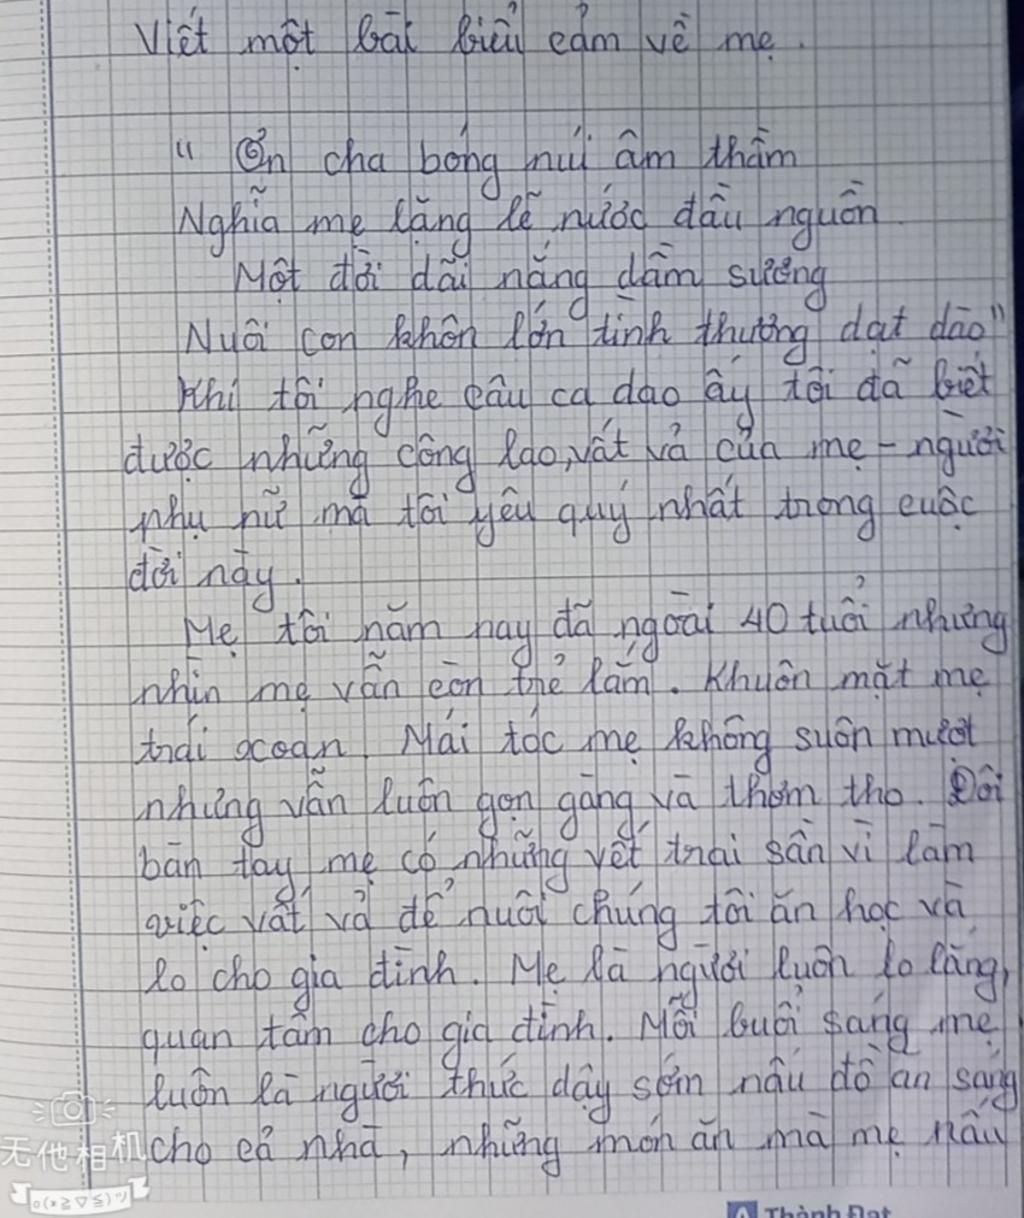 Viết một bài biểu cảm về mẹ.
" Ơn cha bóng núi âm thầm
Nghĩa mẹ lặng lẽ nước đầu nguồn.
Một đời dãi nắng dầm sương
Nuôi con khôn lớn tình thương dạt dào"
Khi tôi nghe câu ca dao ấy tôi đã biết
được những công lao, vất vả của mẹ - người
phụ nữ mà tôi yêu quý nhất trong cuộc
đời này.
Mẹ tôi năm nay đã ngoài 40 tuổi nhưng
nhìn mẹ vẫn còn trẻ lắm. Khuôn mặt mẹ
trái xoan. Mái tóc mẹ không suôn mượt
nhưng vẫn luôn gọn gàng và thơm tho. Đôi
bàn tay mẹ có những vết trai sần vì làm
việc vất vả để nuôi chúng tôi ăn học và
lo cho gia đình. Mẹ là người luôn lo lắng,
quan tâm cho gia đình. Mỗi buổi sáng mẹ
luôn là người thức dậy sớm nấu đồ ăn sáng
cho cả nhà, những món ăn mà mẹ nấu
无他相机
o(*≧▽≦)ツ
Thành Đạt